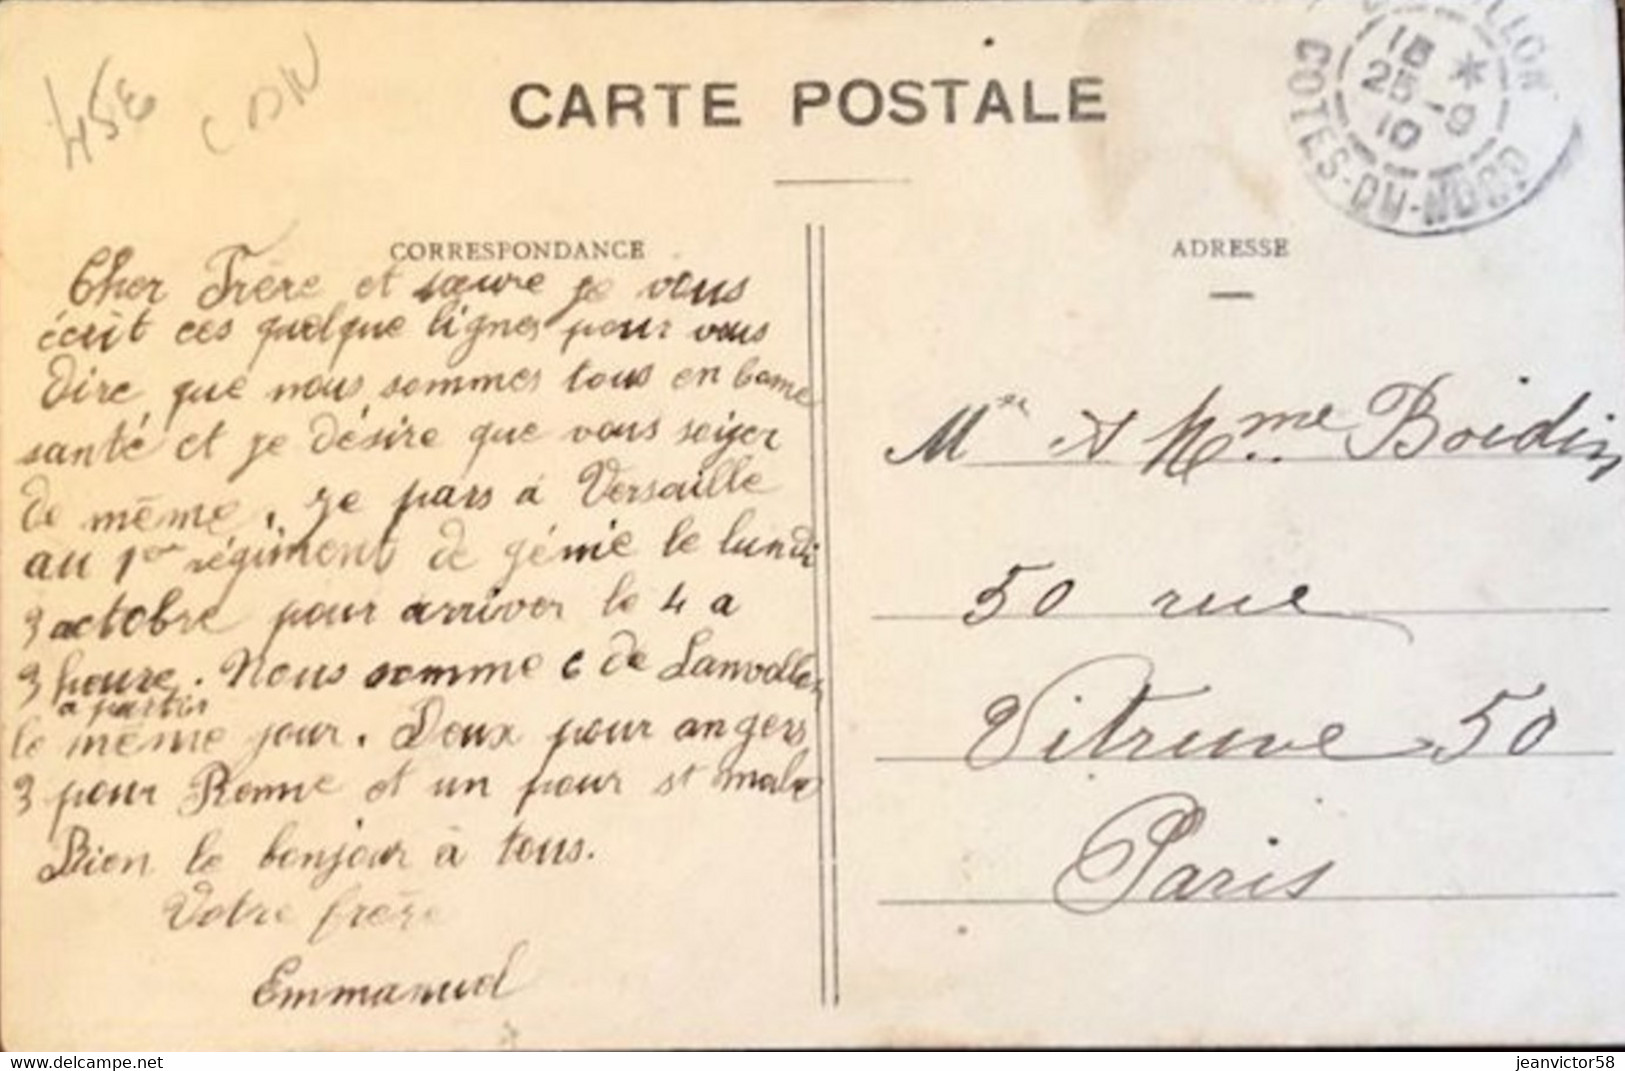 45E
CDN
CARTE POSTALE
15 *
25 -9
10
COTES-DU-NORD
CORRESPONDANCE
ADRESSE
Cher Frère et sœure je vous
écrit ces quelque lignes pour vous
dire que nous sommes tous en bonne
santé et je désire que vous soiyer
de même. Je pars à Versaille
au 1er régiment de génie le lundi
3 octobre pour arriver le 4 a
3 heure. Nous somme 6 de Lanvollon
a partir
le même jour. Deux pour angers
3 pour Renne et un pour st malo
Bien le bonjour à tous.
Votre frère
Emmanuel
Mr et Mme Boidin
50 rue
Vitruve 50
Paris
delcampe.net
jeanvictor58